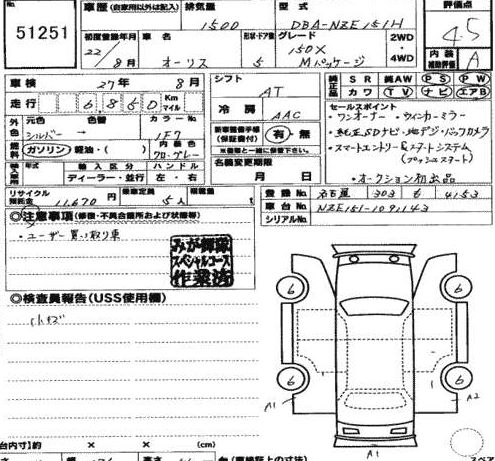 車歴 (自家用以外は記入) 排気量 型式 評価点
51251 1500 DBA-NZE151H 4.5
初度登録年月 車名 形状・ドア数 グレード 2WD・4WD 内装補助評価
22/8月 オーリス 5 150X Mパッケージ A
車検 27年 8月 シフト AT
純正品 SR 純AW PS PW
カワ TV ナビ エアB
走行 6,850 Km マイル 冷房 AAC
セールスポイント
・ワンオーナー ・ウィンカーミラー
・純正SDナビ・地デジ・バックカメラ
・スマートエントリー&スタートシステム
(プッシュスタート)
・オークション初出品
外色 元色 色替 カラーNo.
シルバー → 1F7
新車整備手帳(保証書付) 有・無
燃料 ガソリン 軽油・( ) 内装色 グレー
名義変更期限
月 日
輸入車 年式 輸入区分 ハンドル
ディーラー・並行 左・右
リサイクル預託金 11,670円 乗車定員 5人 積載量 t
登録No. 名古屋 303 も 4153
車台No. NZE151-1091143
シリアルNo.
◎注意事項(修復・不具合箇所および状態等)
・ユーザー買い取り車
みが輝隊
スペシャルコース
作業済
◎検査員報告(USS使用欄)
小キズ
6 6
6 6
A1 A2
A1
荷台内寸]約 × × (cm)
スペア